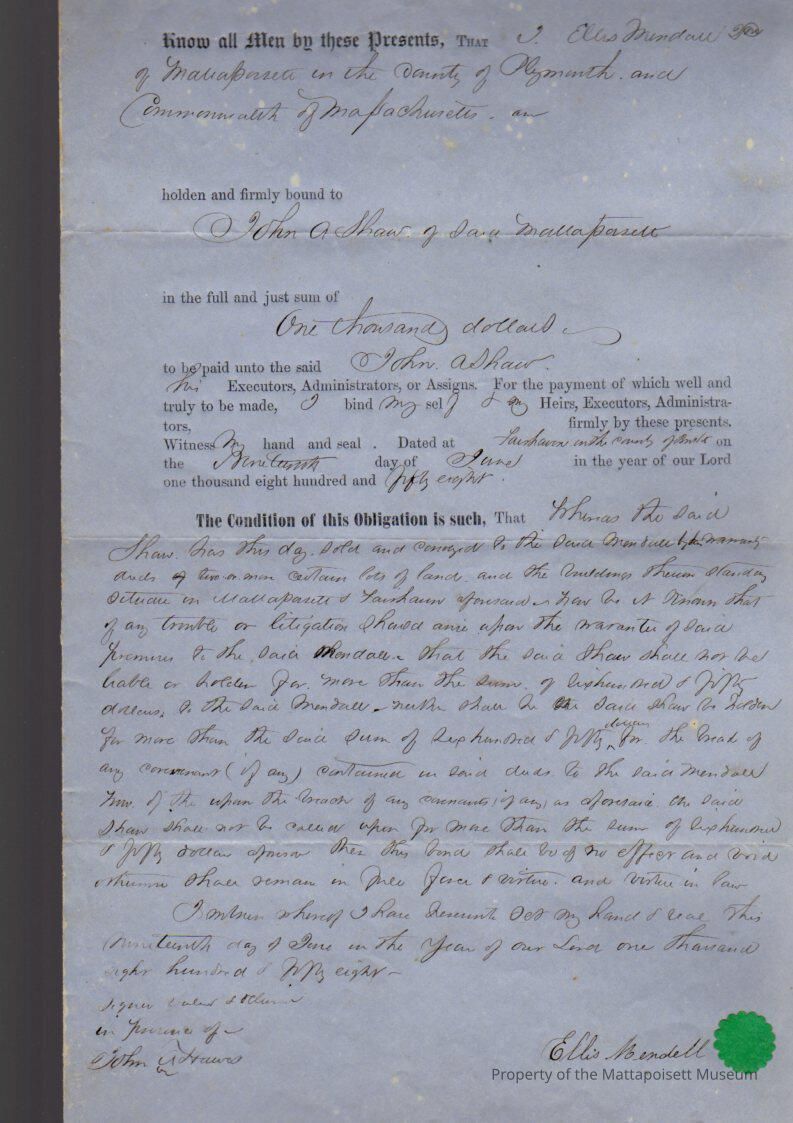 Know all Men by these Presents, THAT I. Ellis Mendall 2nd
of Mattapoisett in the County of Plymouth. and
Commonwealth of Massachusetts. am
holden and firmly bound to
John A Shaw. of said Mattapoisett
in the full and just sum of
One thousand dollars
to be paid unto the said John. A Shaw.
his Executors, Administrators, or Assigns. For the payment of which well and
truly to be made, I bind my self & my Heirs, Executors, Administra-
tors, firmly by these presents.
Witness My hand and seal . Dated at Fairhaven in the county of on
the Nineteenth day of June in the year of our Lord
one thousand eight hundred and fifty eight.
The Condition of this Obligation is such, That Whereas the said
Shaw. has this day. sold and conveyed to the said Mendall by warranty
deeds of two or more certain lots of land. and the buildings thereon standing
situate in Mattapoisett & Fairhaven aforesaid. now be it known that
if any trouble or litigation should arise upon the warrantee of said
premises to the. said Mendall. that the said Shaw shall not be
liable or holden for. more than the sum. of Six hundred & fifty
dollars, to the said Mendall. neither shall he the said Shaw be holden
for more than the said sum of Six hundred & fifty dollars for. the breach of
any covenant (if any) contained in said deeds. to the said Mendall
Now. if the upon the breach of any covenants (if any) as aforesaid. the said
Shaw shall not be called upon for more than the sum of Six hundred
& fifty dollars then this bond shall be of no effect and void
otherwise shall remain in full force & virtue. and virtue in law
In witness whereof I have hereunto set my hand & seal this
Nineteenth day of June in the Year of our Lord one thousand
eight hundred & fifty eight-
signed sealed &
in presence of
John
Ellis Mendell
Property of the Mattapoisett Museum